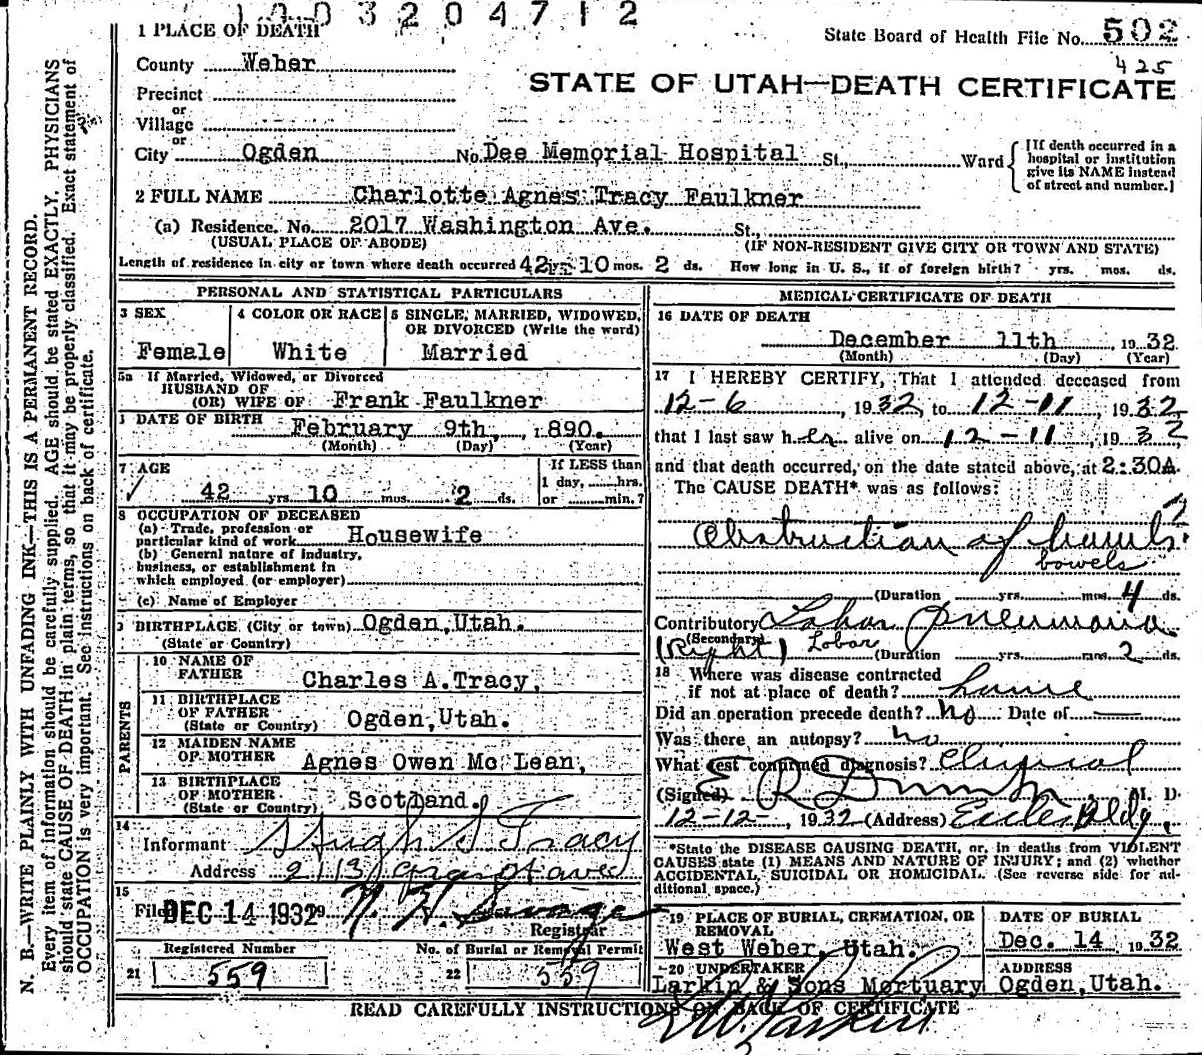 1003204712
1 PLACE OF DEATH
State Board of Health File No. 502
425
County Weber
STATE OF UTAH—DEATH CERTIFICATE
Precinct
or
Village
or
City Ogden No. Dee Memorial Hospital St., Ward
[If death occurred in a
hospital or institution
give its NAME instead
of street and number.]
2 FULL NAME Charlotte Agnes Tracy Faulkner
(a) Residence. No. 2017 Washington Ave. St.,
(USUAL PLACE OF ABODE) (IF NON-RESIDENT GIVE CITY OR TOWN AND STATE)
Length of residence in city or town where death occurred 42 yrs. 10 mos. 2 ds. How long in U. S., if of foreign birth? yrs. mos. ds.
PERSONAL AND STATISTICAL PARTICULARS
3 SEX
Female
4 COLOR OR RACE
White
5 SINGLE, MARRIED, WIDOWED,
OR DIVORCED (Write the word)
Married
5a If Married, Widowed, or Divorced
HUSBAND OF
(OR) WIFE OF Frank Faulkner
DATE OF BIRTH February 9th, 1890.
(Month) (Day) (Year)
7 AGE
42 yrs 10 mos 2 ds.
If LESS than
1 day, hrs.
or min.?
8 OCCUPATION OF DECEASED
(a) Trade, profession or
particular kind of work Housewife
(b) General nature of industry,
business, or establishment in
which employed (or employer)
(c) Name of Employer
9 BIRTHPLACE (City or town) Ogden, Utah.
(State or Country)
PARENTS
10 NAME OF
FATHER Charles A. Tracy,
11 BIRTHPLACE
OF FATHER
(State or Country) Ogden, Utah.
12 MAIDEN NAME
OF MOTHER Agnes Owen Mc Lean,
13 BIRTHPLACE
OF MOTHER
(State or Country) Scotland.
14
Informant Hugh S Tracy
Address 2113 Grant ave
15
Filed DEC 14 1932 19
Registrar
Registered Number
21 559
No. of Burial or Removal Permit
22 559
MEDICAL CERTIFICATE OF DEATH
16 DATE OF DEATH
December 11th, 1932
(Month) (Day) (Year)
17 I HEREBY CERTIFY, That I attended deceased from
12-6, 1932, to 12-11, 1932
that I last saw her alive on 12-11, 1932
and that death occurred, on the date stated above, at 2:30A.
The CAUSE DEATH* was as follows:
?
Obstruction of bowels
bowels
(Duration yrs. mos. 4 ds.
Contributory Lobar pneumonia
(Secondary)
(Right) Lobar
(Duration yrs. mos. 2 ds.
18 Where was disease contracted
if not at place of death? home
Did an operation precede death? no Date of —
Was there an autopsy? no
What test confirmed diagnosis? Clinical
(Signed) E R Dumke, M. D.
12-12-, 1932 (Address) Eccles Bldg.
*State the DISEASE CAUSING DEATH, or, in deaths from VIOLENT
CAUSES state (1) MEANS AND NATURE OF INJURY; and (2) whether
ACCIDENTAL, SUICIDAL OR HOMICIDAL. (See reverse side for ad-
ditional space.)
19 PLACE OF BURIAL, CREMATION, OR
REMOVAL
West Weber, Utah.
DATE OF BURIAL
Dec. 14 1932
20 UNDERTAKER
Larkin & Sons Mortuary
ADDRESS
Ogden, Utah.
READ CAREFULLY INSTRUCTIONS ON BACK OF CERTIFICATE
N. B.—WRITE PLAINLY WITH UNFADING INK—THIS IS A PERMANENT RECORD.
Every item of information should be carefully supplied. AGE should be stated EXACTLY. PHYSICIANS
should state CAUSE OF DEATH in plain terms, so that it may be properly classified. Exact statement of
OCCUPATION is very important. See instructions on back of certificate.